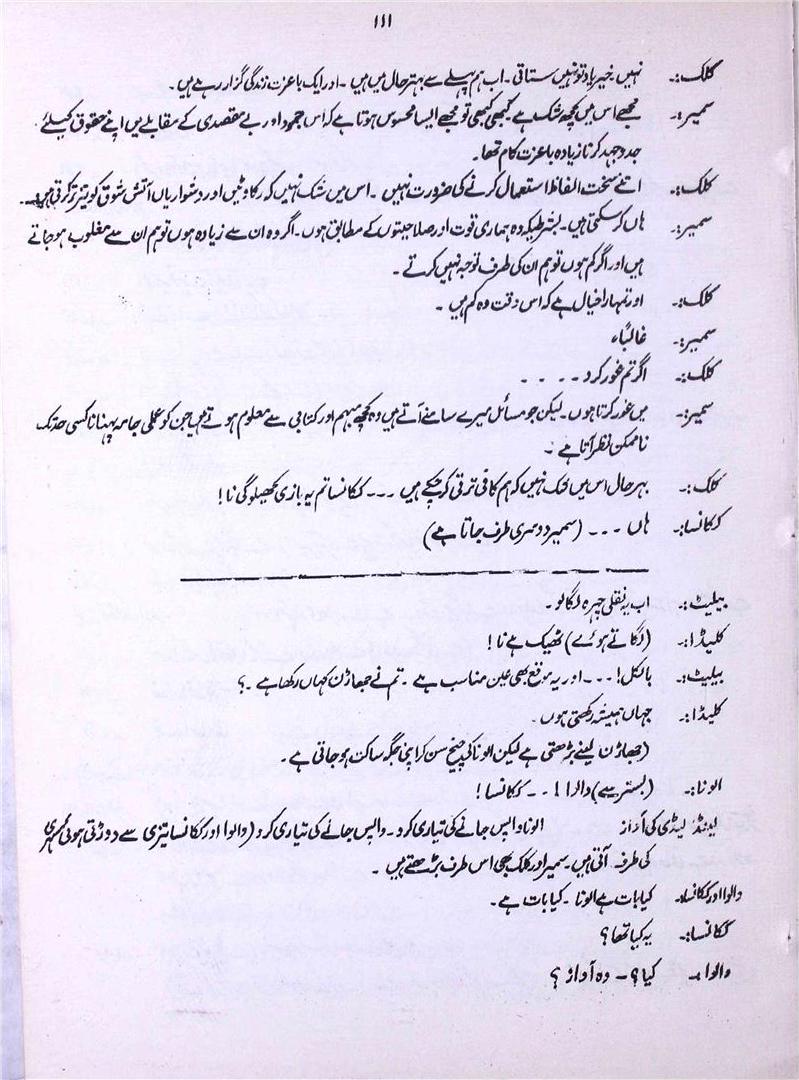 ۱۱۱
کلک:۔ نہیں۔ خیر یاد تو نہیں ستاتی۔ اب ہم پہلے سے بہتر حال میں ہیں۔ اور ایک باعزت زندگی گزار رہے ہیں۔
سمیر:۔ مجھے اس میں کچھ شک ہے۔ کبھی کبھی تو مجھے ایسا محسوس ہوتا ہے کہ اس جمود اور بے مقصدی کے مقابلے میں اپنے حقوق کیلئے
جدوجہد کرنا زیادہ باعزت کام تھا۔
کلک:۔ اتنے سخت الفاظ استعمال کرنے کی ضرورت نہیں۔ اس میں شک نہیں کہ رکاوٹیں اور دشواریاں آتش شوق کو تیز تر کرتی ہیں۔
سمیر:۔ ہاں کر سکتی ہیں۔ بشرطیکہ وہ ہماری قوت اور صلاحیتوں کے مطابق ہوں۔ اگر وہ ان سے زیادہ ہوں تو ہم ان سے مغلوب ہو جاتے
ہیں اور اگر کم ہوں تو ہم ان کی طرف توجہ نہیں کرتے۔
کلک:۔ اور تمہارا خیال ہے کہ اس وقت وہ کم ہیں۔
سمیر:۔ غالباً
کلک:۔ اگر تم غور کرو۔۔۔۔
سمیر:۔ میں غور کرتا ہوں۔ لیکن جو مسائل میرے سامنے آتے ہیں وہ کچھ مبہم اور کتابی سے معلوم ہوتے ہیں جن کو عملی جامہ پہنانا کسی حد تک
ناممکن نظر آتا ہے۔
کلک:۔ بہر حال اس میں شک نہیں کہ ہم کافی ترقی کر چکے ہیں ۔۔۔ ککانسا تم یہ بازی کھیلو گی نا!
ککانسا:۔ ہاں ۔۔۔ (سمیر دوسری طرف جاتا ہے)
بیلیٹ:۔ اب یہ نقلی چہرہ لگا لو۔
کلیڈا:۔ (لگاتے ہوئے) ٹھیک ہے نا!
بیلیٹ:۔ بالکل! ۔۔۔ اور یہ موقع بھی عین مناسب ہے۔ تم نے جھاڑن کہاں رکھا ہے۔؟
کلیڈا:۔ جہاں ہمیشہ رکھتی ہوں۔
(جھاڑن لینے بڑھتی ہے لیکن الونا کی چیخ سن کر اپنی جگہ ساکن ہو جاتی ہے۔
الونا:۔ (بستر سے) والوا! ۔۔ ککانسا!
لینڈ لیڈی کی آواز الونا واپس جانے کی تیاری کرو۔ واپس جانے کی تیاری کرو (والوا اور ککانسا تیزی سے دوڑتی ہوئی مسہری
کی طرف آتی ہیں۔ سمیر اور کلک بھی اس طرف بڑھتے ہیں۔
والوا اور ککانسا:۔ کیا بات ہے الونا۔ کیا بات ہے۔
ککانسا:۔ یہ کیا تھا؟
والوا:۔ کیا؟ ۔ وہ آواز؟